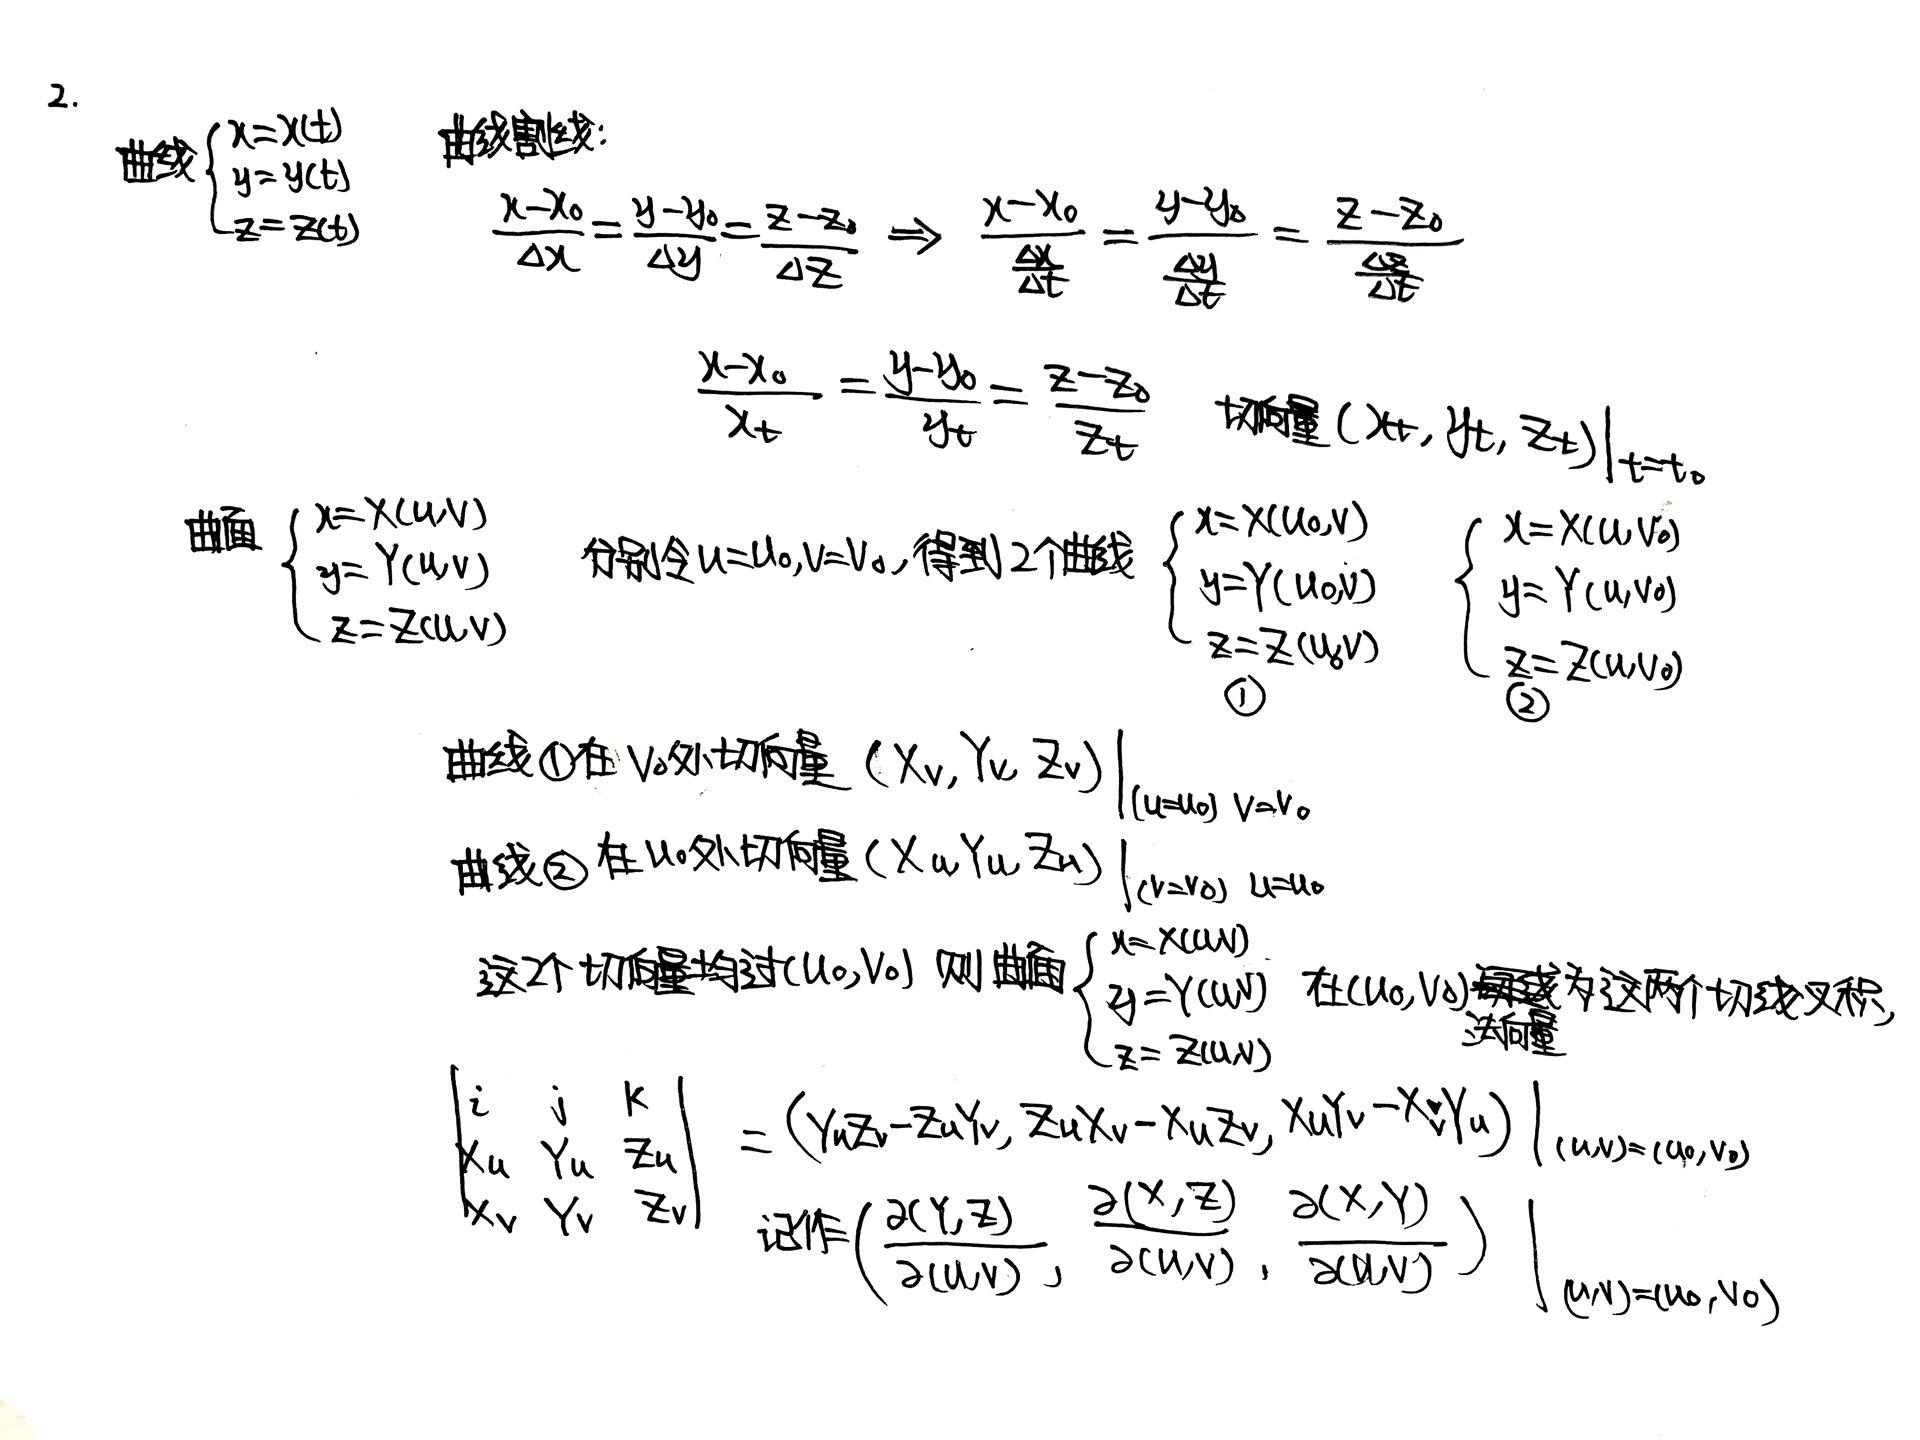 2.
曲线 { x=x(t) y=y(t) z=z(t) 曲线割线:
(x-x₀)/Δx = (y-y₀)/Δy = (z-z₀)/Δz ⇒ (x-x₀)/(Δx/Δt) = (y-y₀)/(Δy/Δt) = (z-z₀)/(Δz/Δt)
(x-x₀)/x_t = (y-y₀)/y_t = (z-z₀)/z_t 切向量 (x_t, y_t, z_t)|_{t=t₀}
曲面 { x=X(u,v) y=Y(u,v) z=Z(u,v) 分别令u=u₀,v=v₀,得到2个曲线 { x=X(u₀,v) y=Y(u₀,v) z=Z(u₀,v) ① { x=X(u,v₀) y=Y(u,v₀) z=Z(u,v₀) ②
曲线①在v₀处切向量 (X_v, Y_v, Z_v)|_{(u=u₀) v=v₀}
曲线②在u₀处切向量 (X_u Y_u, Z_u)|_{(v=v₀) u=u₀}
这2个切向量均过(u₀,v₀) 则曲面 { x=X(u,v) y=Y(u,v) z=Z(u,v) 在(u₀,v₀) 法向量 为这两个切线叉积,
| i j k | = (Y_uZ_v-Z_uY_v, Z_uX_v-X_uZ_v, X_uY_v-X_vY_u)|_{(u,v)=(u₀,v₀)}
| X_u Y_u Z_u |
| X_v Y_v Z_v | 记作 (∂(Y,Z)/∂(u,v), ∂(X,Z)/∂(u,v), ∂(X,Y)/∂(u,v))|_{(u,v)=(u₀,v₀)}